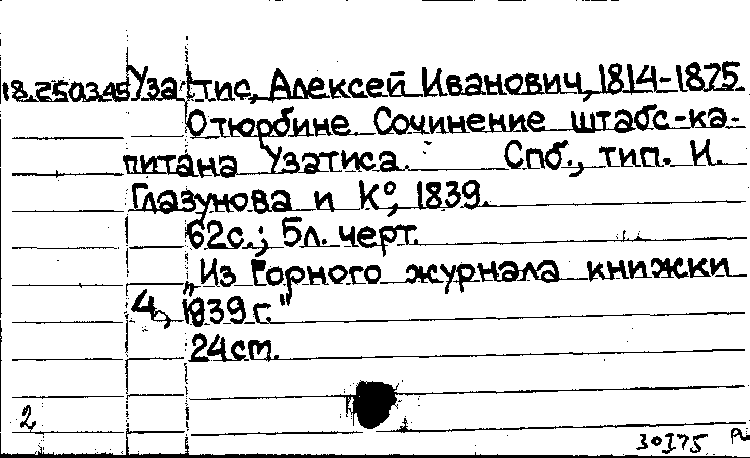 18.250.345 Узатис, Алексей Иванович, 1814-1875.
О тюрбине. Сочинение штабс-ка-
питана Узатиса. Спб., тип. И.
Глазунова и К°, 1839.
62с.; 5л. черт.
„Из Горного журнала книжки
4, 1839 г."
24см.
2
30175